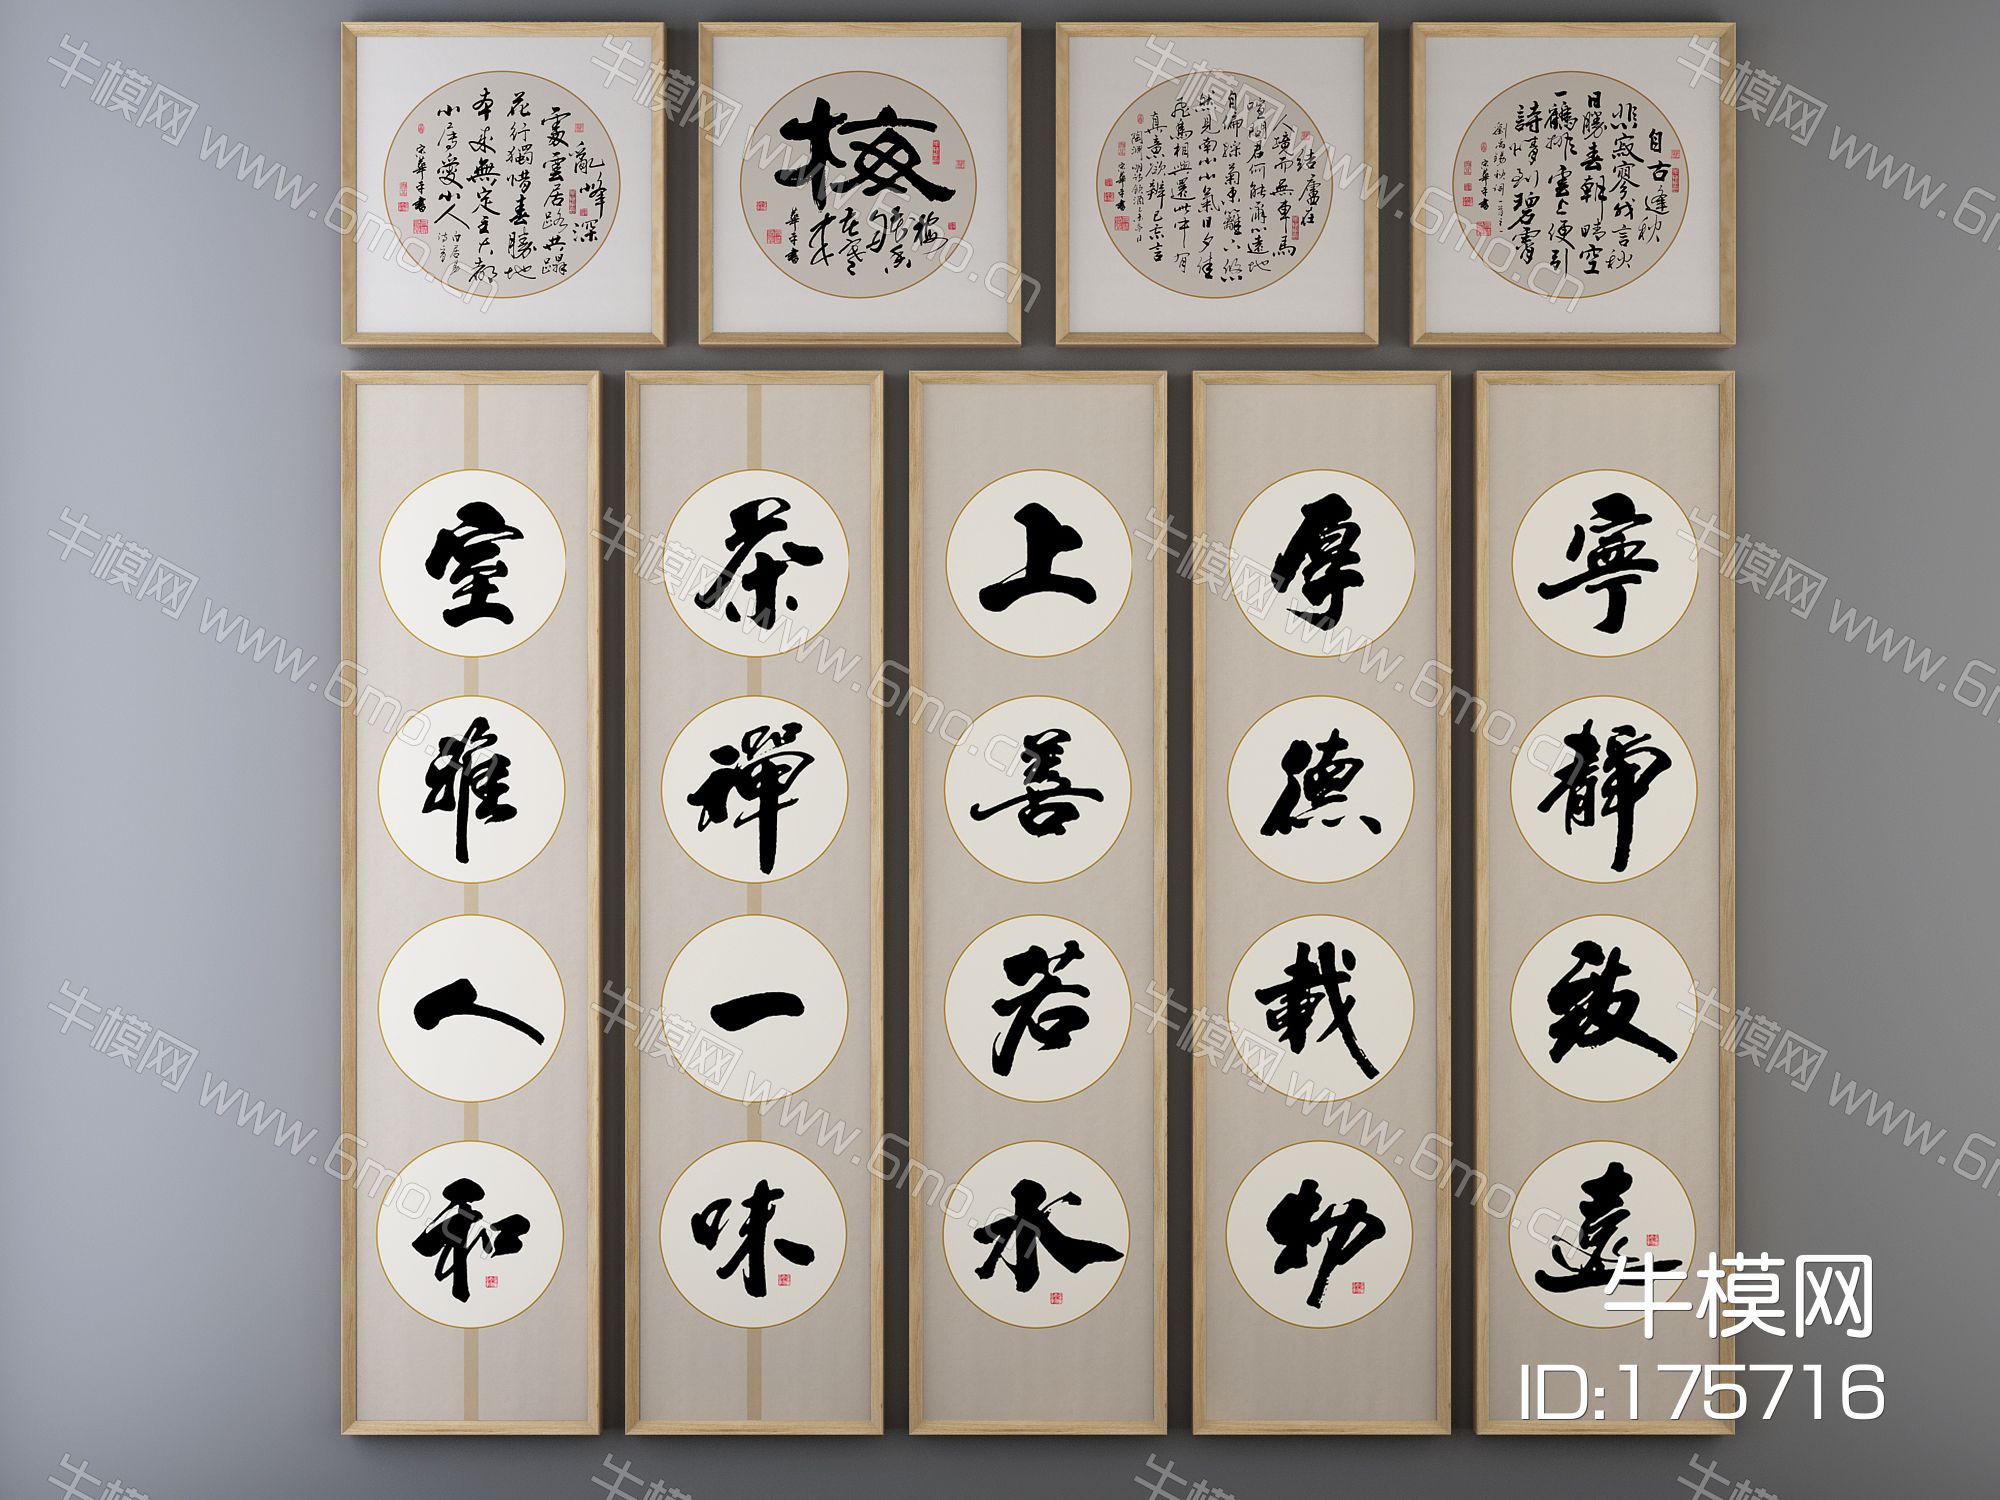 亂峰深
處雲居路共蹋
花行獨惜春勝地
本來無定主大都
山屬愛山人
白居易
詩句
宋華平書
梅
華平書
結廬在
人境而無車馬
喧問君何能爾心遠地
自偏採菊東籬下悠
然見南山山氣日夕佳
飛鳥相與還此中有
真意欲辨已忘言
宋華平書
自古逢秋
悲寂寥我言秋
日勝春朝晴空
一鶴排雲上便引
詩情到碧霄
劉禹錫秋詞一首
宋華平書
室雅人和
茶禪一味
上善若水
厚德載物
寧靜致遠
牛模网 www.6mo.cn
牛模网
ID:175716